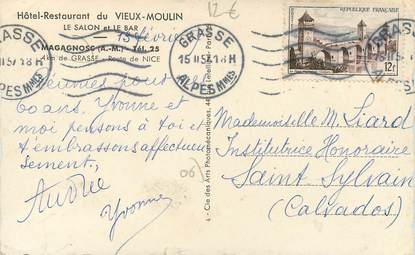 Hôtel-Restaurant du VIEUX-MOULIN
LE SALON et LE BAR
MAGAGNOSC (A.-M.) - Tél. 25
4 km de GRASSE - Route de NICE
12 €
15 février
Réunies pour
60 ans, Yvonne et
moi pensons à toi et
t'embrassons affectueu
sement,
Yvonne
(06)
4 - Cie des Arts Photomécaniques, 44
GRASSE
15 II 57 18 H
ALPES MMES
GRASSE
II 57 18 H
ALPES MMES
RÉPUBLIQUE FRANÇAISE
12F
Mademoiselle M. Liard
Institutrice Honoraire
Saint Sylvain
(Calvados)